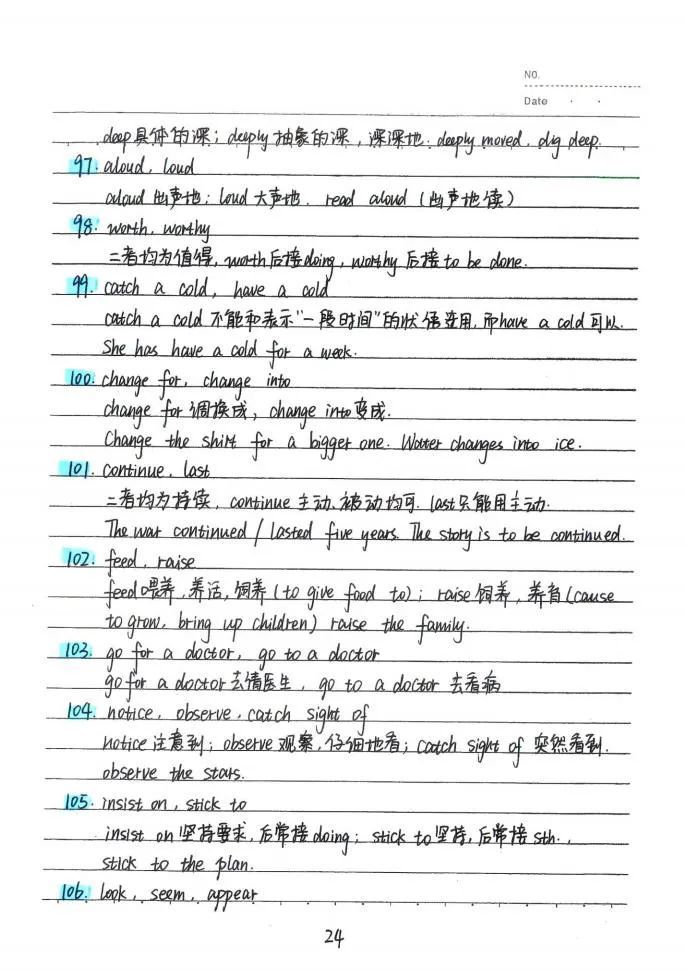 NO.
Date
deep具体的深；deeply抽象的深，深深地. deeply moved. dig deep.
97. aloud, loud
aloud出声地；loud大声地. read aloud（出声地读）
98. worth, worthy
二者均为值得，worth后接doing，worthy后接to be done.
99. catch a cold, have a cold
catch a cold不能和表示"一段时间"的状语连用，而have a cold可以.
She has have a cold for a week.
100. change for, change into
change for调换成，change into变成.
Change the shirt for a bigger one. Water changes into ice.
101. continue, last
二者均为持续，continue主动、被动均可. last只能用主动.
The war continued / lasted five years. The story is to be continued.
102. feed, raise
feed喂养，养活，饲养（to give food to）；raise饲养，养育（cause
to grow, bring up children）raise the family.
103. go for a doctor, go to a doctor
go for a doctor去请医生，go to a doctor去看病
104. notice, observe, catch sight of
notice注意到；observe观察，仔细地看；catch sight of突然看到.
observe the stars.
105. insist on, stick to
insist on坚持要求，后常接doing；stick to坚持，后常接sth.,
stick to the plan.
106. look, seem, appear
24